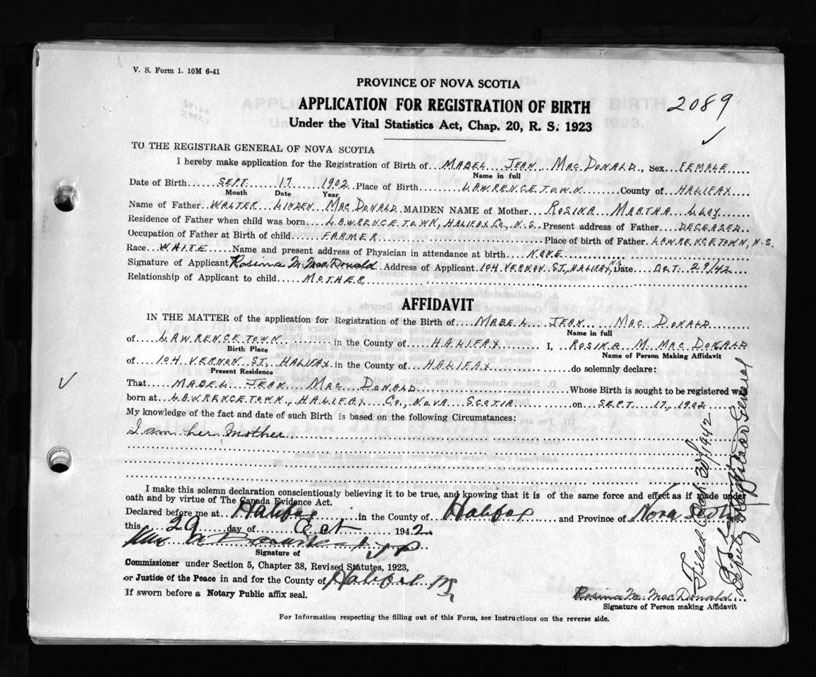 V. S. Form 1. 10M 6-41
PROVINCE OF NOVA SCOTIA
APPLICATION FOR REGISTRATION OF BIRTH
2089
Under the Vital Statistics Act, Chap. 20, R. S. 1923
✓
TO THE REGISTRAR GENERAL OF NOVA SCOTIA
I hereby make application for the Registration of Birth of MABEL JEAN MACDONALD, Sex FEMALE
Name in full
Date of Birth SEPT 17 1902 Place of Birth LAWRENCETOWN County of HALIFAX
Month Date Year
Name of Father WALTER LINDEN MACDONALD MAIDEN NAME of Mother ROSINA MARTHA LLOY
Residence of Father when child was born LAWRENCETOWN, HALIFAX CO, N.S. Present address of Father DECEASED
Occupation of Father at Birth of child FARMER Place of birth of Father LAWRENCETOWN, N.S.
Race WHITE Name and present address of Physician in attendance at birth NONE
Signature of Applicant Rosina M. MacDonald Address of Applicant 104 VERNON ST, HALIFAX, N.S. Date OCT. 29/42
Relationship of Applicant to child MOTHER
AFFIDAVIT
IN THE MATTER of the application for Registration of the Birth of MABEL JEAN MACDONALD
Name in full
of LAWRENCETOWN in the County of HALIFAX I, ROSINA M. MACDONALD
Birth Place Name of Person Making Affidavit
of 104 VERNON ST, HALIFAX in the County of HALIFAX do solemnly declare:
Present Residence
✓
That MABEL JEAN MACDONALD Whose Birth is sought to be registered was
born at LAWRENCETOWN, HALIFAX CO, NOVA SCOTIA on SEPT. 17, 1902
My knowledge of the fact and date of such Birth is based on the following Circumstances:
I am her mother
I make this solemn declaration conscientiously believing it to be true, and knowing that it is of the same force and effect as if made under
oath and by virtue of The Canada Evidence Act.
Declared before me at Halifax in the County of Halifax and Province of Nova Scotia
this 29 day of Oct 1942
Signature of
Commissioner under Section 5, Chapter 38, Revised Statutes, 1923,
or Justice of the Peace in and for the County of Halifax
If sworn before a Notary Public affix seal.
Rosina M. MacDonald
Signature of Person making Affidavit
For Information respecting the filling out of this Form, see Instructions on the reverse side.
Filed 1942
Deputy Registrar General